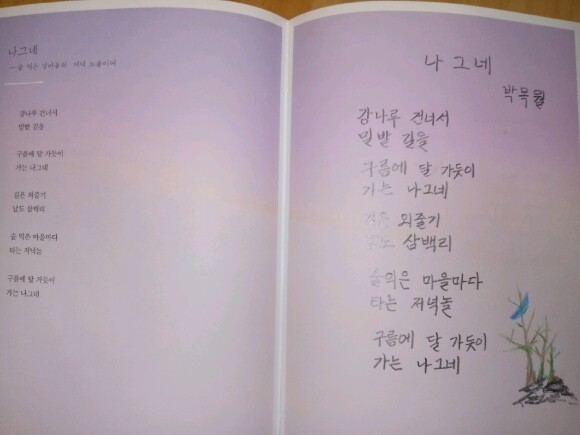 나그네
- 술 익은 강마을의 저녁 노을이여
강나루 건너서
밀밭 길을
구름에 달 가듯이
가는 나그네
길은 외줄기
남도 삼백리
술 익은 마을마다
타는 저녁놀
구름에 달 가듯이
가는 나그네
나 그네
박목월
강나루 건너서
밀밭 길을
구름에 달 가듯이
가는 나그네
길은 외줄기
남도 삼백리
술익은 마을마다
타는 저녁놀
구름에 달 가듯이
가는 나그네